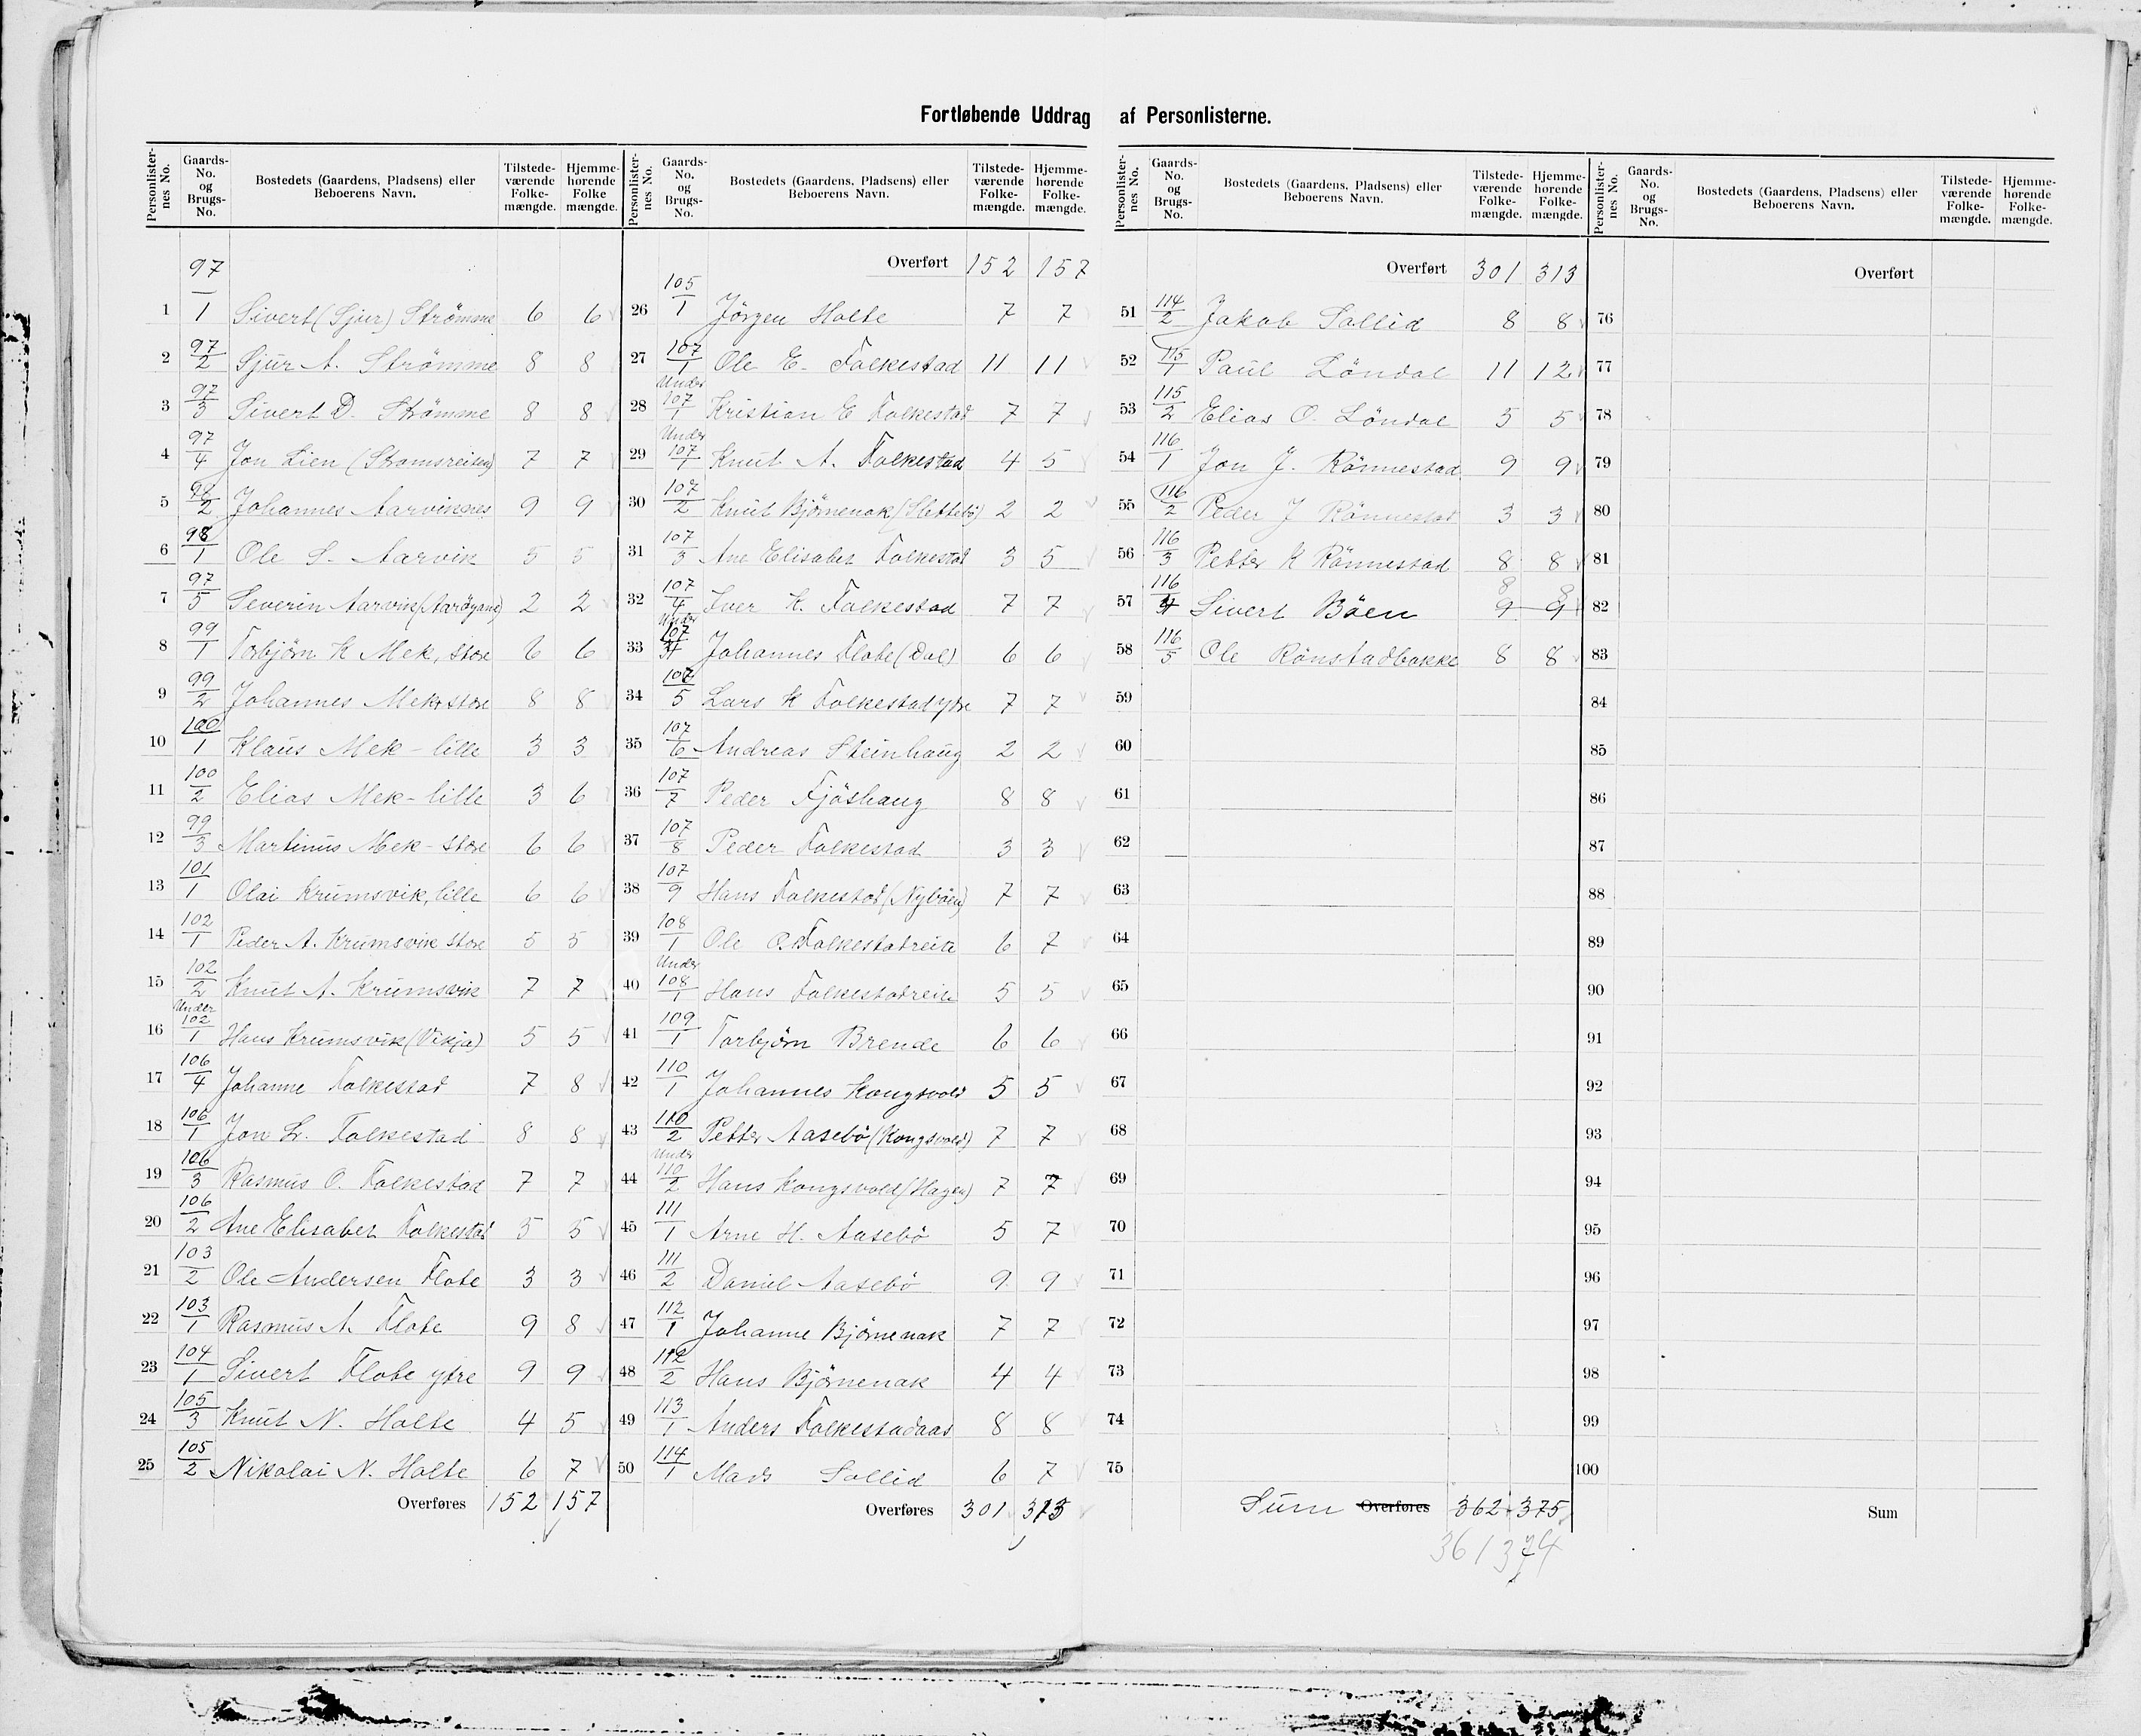 Fortløbende Uddrag af Personlisterne.
Personlister-nes No. Gaards-No. og Brugs-No. Bostedets (Gaardens, Pladsens) eller Beboerens Navn. Tilstede-værende Folke-mængde. Hjemme-hørende Folke mængde.
1 97/1 Sivert (Sjur) Strömme 6 6
2 97/2 Sjur A. Strömme 8 8
3 97/3 Sivert D. Strömme 8 8
4 97/4 Jon Lien (Stromsreiten) 7 7
5 98/2 Johannes Aarviknes 9 9
6 98/1 Ole S. Aarvik 5 5
7 97/5 Severin Aarvik (Aarögane) 2 2
8 99/1 Torbjörn K Mek, store 6 6
9 99/2 Johannes Mek, store 8 8
10 100/1 Klaus Mek - lille 3 3
11 100/2 Elias Mek - lille 3 6
12 99/3 Martinus Mek - store 6 6
13 101/1 Olai Krumsvik, lille 6 6
14 102/1 Peder A. Krumsvik store 5 5
15 102/2 Knut A. Krumsvik 7 7
16 Under 102/1 Hans Krumsvik (Vikja) 5 5
17 106/4 Johanne Folkestad 7 8
18 106/1 Jon L. Folkestad 8 8
19 106/3 Rasmus O. Folkestad 7 7
20 106/2 Ane Elisabet Folkestad 5 5
21 103/2 Ole Andersen Flote 3 3
22 103/1 Rasmus A Flote 9 8
23 104/1 Sivert Flote ytre 9 9
24 105/3 Knut N. Holte 4 5
25 105/2 Nikolai N. Holte 6 7
Overføres 152 157
Personlister-nes No. Gaards-No. og Brugs-No. Bostedets (Gaardens, Pladsens) eller Beboerens Navn. Tilstede-værende Folke-mængde. Hjemme-hørende Folke-mængde.
Overført 152 157
26 105/1 Jörgen Holte 7 7
27 107/1 Ole E. Folkestad 11 11
28 Under 107/1 Kristian E Folkestad 7 7
29 Under 107/1 Knut A. Folkestad 4 5
30 107/2 Knut Björnenak (Slettebö) 2 2
31 107/3 Ane Elisabet Folkestad 3 5
32 107/4 Iver K. Folkestad 7 7
33 Under 107/4 Johannes Flote (Dal) 6 6
34 107/5 Lars K Folkestad ytre 7 7
35 107/6 Andreas Steinhaug 2 2
36 107/7 Peder Fjöshaug 8 8
37 107/8 Peder Folkestad 3 3
38 107/9 Hans Folkestad (Nyböen) 7 7
39 108/1 Ole O. Folkestadreite 6 7
40 Under 108/1 Hans Folkestadreite 5 5
41 109/1 Torbjörn Brende 6 6
42 110/1 Johannes Kongsvold 5 5
43 110/2 Petter Aasebö (Kongsvold) 7 7
44 Under 110/2 Hans Kongsvold (Hagen) 7 7
45 111/1 Arne H. Aasebö 5 7
46 111/2 Daniel Aasebö 9 9
47 112/1 Johanne Björnenak 7 7
48 112/2 Hans Björnenak 4 4
49 113/1 Anders Folkestadaas 8 8
50 114/1 Mads Sollid 6 7
Overføres 301 313
Personlister-nes No. Gaards-No. og Brugs-No. Bostedets (Gaardens, Pladsens) eller Beboerens Navn. Tilstede-værende Folke-mængde. Hjemme-hørende Folke-mængde.
Overført 301 313
51 114/2 Jakob Sollid 8 8
52 115/1 Paul Löndal 11 12
53 115/2 Elias O. Löndal 5 5
54 116/1 Jon J. Rönnestad 9 9
55 116/2 Peder J Rönnestad 3 3
56 116/3 Petter K Rönnestad 8 8
8 8
57 116/4 Sivert Böen 9 9
58 116/5 Ole Rönstadbakke 8 8
59
60
61
62
63
64
65
66
67
68
69
70
71
72
73
74
75
Sum Overføres 362 375
361 374
Personlister-nes No. Gaards-No. og Brugs-No. Bostedets (Gaardens, Pladsens) eller Beboerens Navn. Tilstede-værende Folke-mængde. Hjemme-hørende Folke-mængde.
Overført
76
77
78
79
80
81
82
83
84
85
86
87
88
89
90
91
92
93
94
95
96
97
98
99
100
Sum